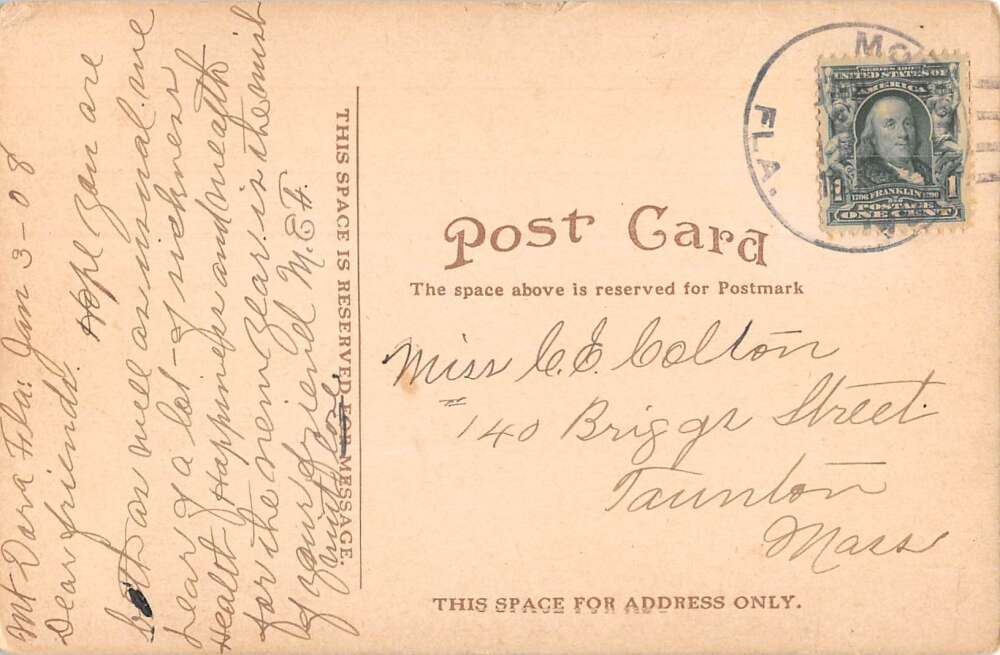 Mt Dora Fla: Jan 3-08
Dear friends.
Hope you are
both as well as usual. we
hear of a lot of sickness
Health Happiness and Wealth
for the new year. is the wish
of your friend M. E. F.
THIS SPACE IS RESERVED FOR MESSAGE.
MO
FLA.
SERIES 1902
UNITED STATES OF
AMERICA
1706 FRANKLIN 1790
1 1
POSTAGE
ONE CENT
Post Card
The space above is reserved for Postmark
Miss C. E. Colton
140 Briggs Street
Taunton
Mass
THIS SPACE FOR ADDRESS ONLY.